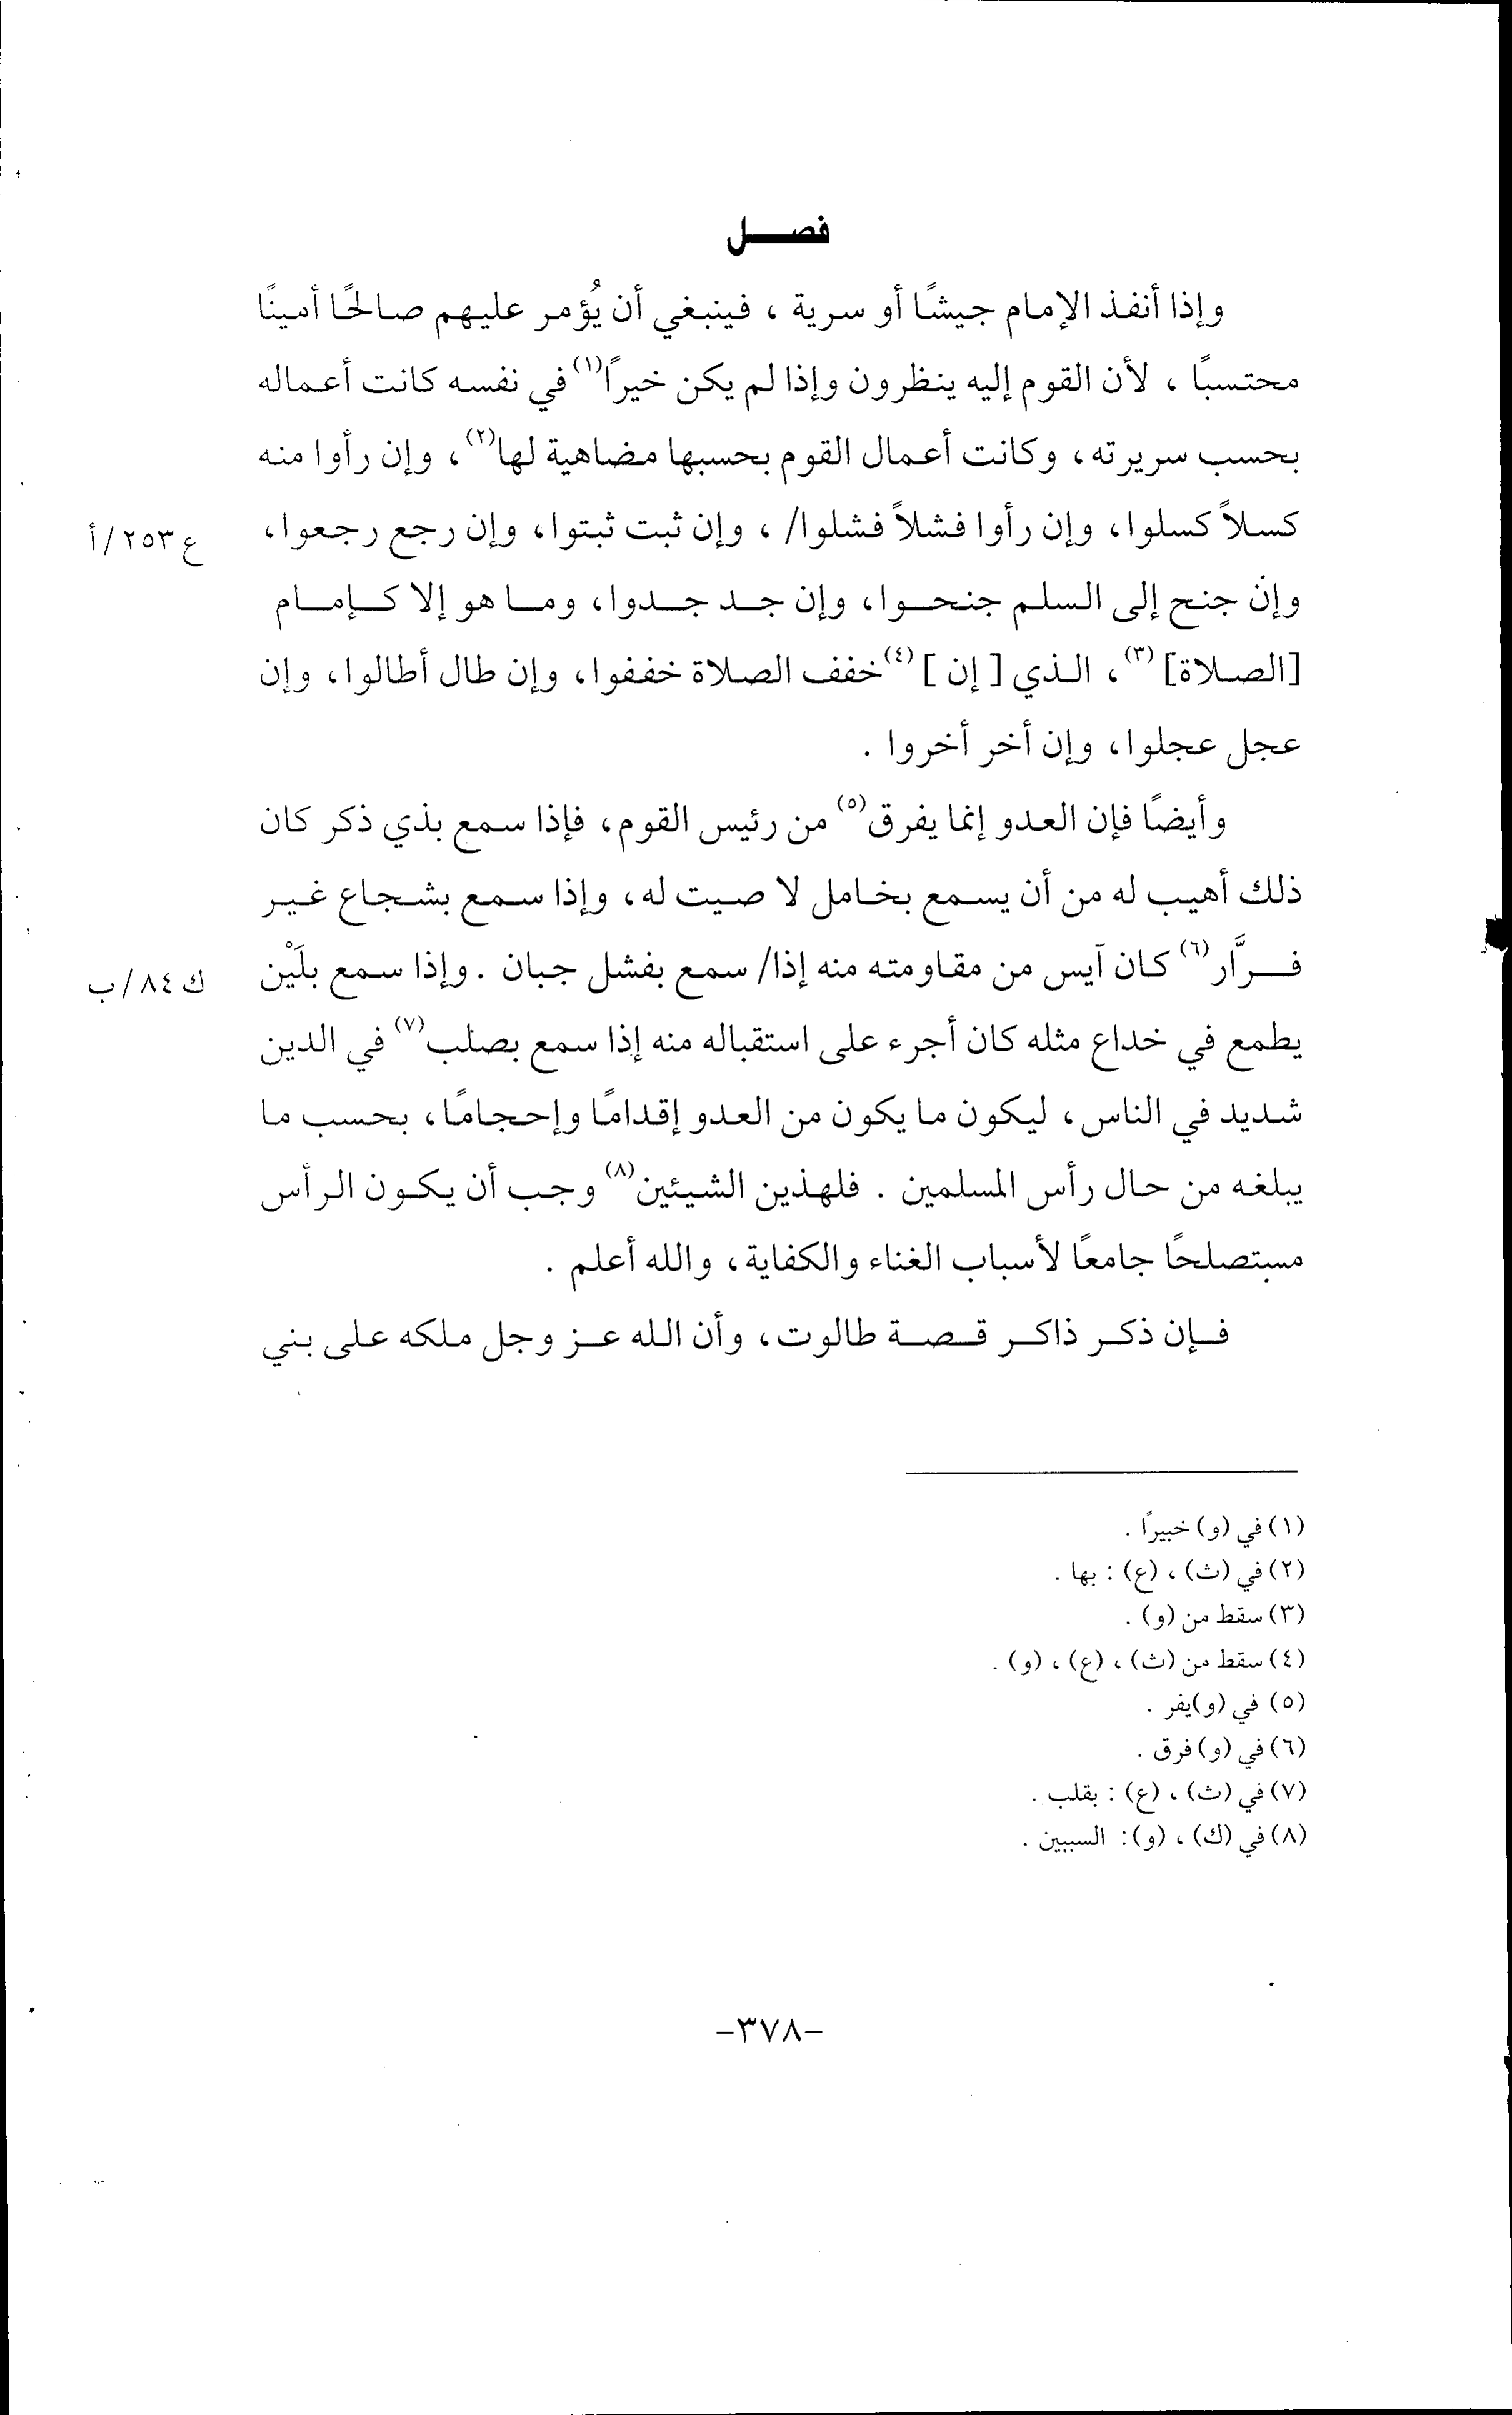 فصـــل
وإذا أنفذ الإمام جيشًا أو سرية ، فينبغي أن يُؤمر عليهم صالحًا أمينًا
محتسبًا ، لأن القوم إليه ينظرون وإذا لم يكن خيرًا(١) في نفسه كانت أعماله
بحسب سريرته، وكانت أعمال القوم بحسبها مضاهية لها(٢) ، وإن رأوا منه
كسلاً كسلوا، وإن رأوا فشلاً فشلوا/ ، وإن ثبت ثبتوا، وإن رجع رجعوا،
ع ٢٥٣/أ
وإن جنح إلى السلم جنحوا، وإن جد جدوا، وما هو إلا كإمام
[الصلاة](٣) ، الذي [ إن ](٤) خفف الصلاة خففوا، وإن طال أطالوا، وإن
عجل عجلوا، وإن أخر أخروا .
وأيضًا فإن العدو إنما يفرق(٥) من رئيس القوم، فإذا سمع بذي ذكر كان
ذلك أهيب له من أن يسمع بخامل لا صيت له، وإذا سمع بشجاع غير
فرَّار(٦) كان آيس من مقاومته منه إذا/ سمع بفشل جبان . وإذا سمع بلَيْن
ك ٨٤/ب
يطمع في خداع مثله كان أجرء على استقباله منه إذا سمع بصلب(٧) في الدين
شديد في الناس، ليكون ما يكون من العدو إقدامًا وإحجامًا، بحسب ما
يبلغه من حال رأس المسلمين . فلهذين الشيئين(٨) وجب أن يكون الرأس
مستصلحًا جامعًا لأسباب الغناء والكفاية، والله أعلم .
فإن ذكر ذاكر قصة طالوت، وأن الله عز وجل ملكه على بني
(١) في (و) خبيرًا .
(٢) في (ث) ، (ع) : بها .
(٣) سقط من (و) .
(٤) سقط من (ث) ، (ع) ، (و) .
(٥) في (و)يفر .
(٦) في (و) فرق .
(٧) في (ث) ، (ع) : بقلب .
(٨) في (ك) ، (و): السببين .
-٣٧٨-